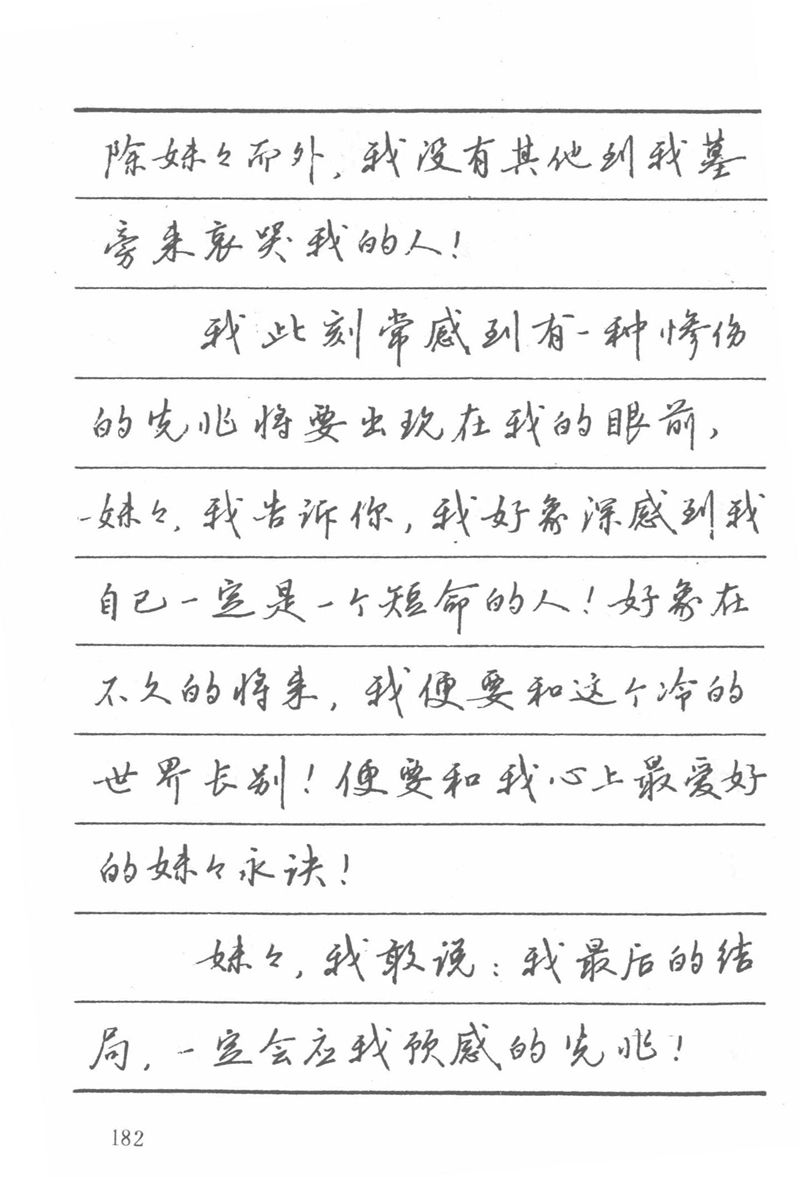 除妹々而外，我没有其他到我墓
旁来哀哭我的人！
我此刻常感到有一种惨伤
的先兆将要出现在我的眼前，
妹々，我告诉你，我好象深感到我
自己一定是一个短命的人！好象在
不久的将来，我便要和这个冷的
世界长别！便要和我心上最爱好
的妹々永诀！
妹々，我敢说：我最后的结
局，一定会应我预感的先兆！
182